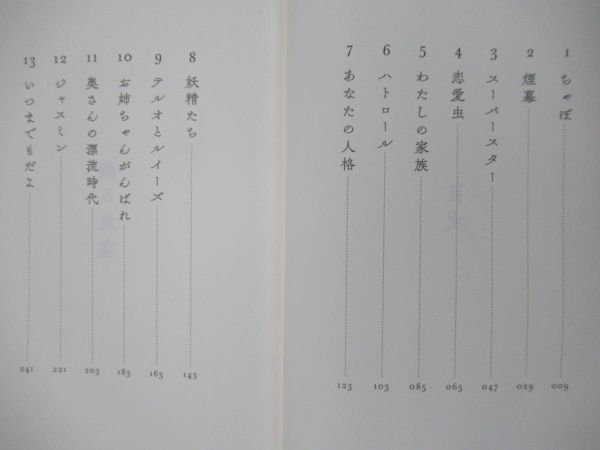 1 ちゃぼ 009
2 煙幕 029
3 スーパースター 047
4 恋愛虫 065
5 わたしの家族 085
6 ハトロール 103
7 あなたの人格 123
8 妖精たち 143
9 テルオとルイーズ 163
10 お姉ちゃんがんばれ 183
11 奥さんの漂流時代 203
12 ジャスミン 221
13 いつまでもだよ 241